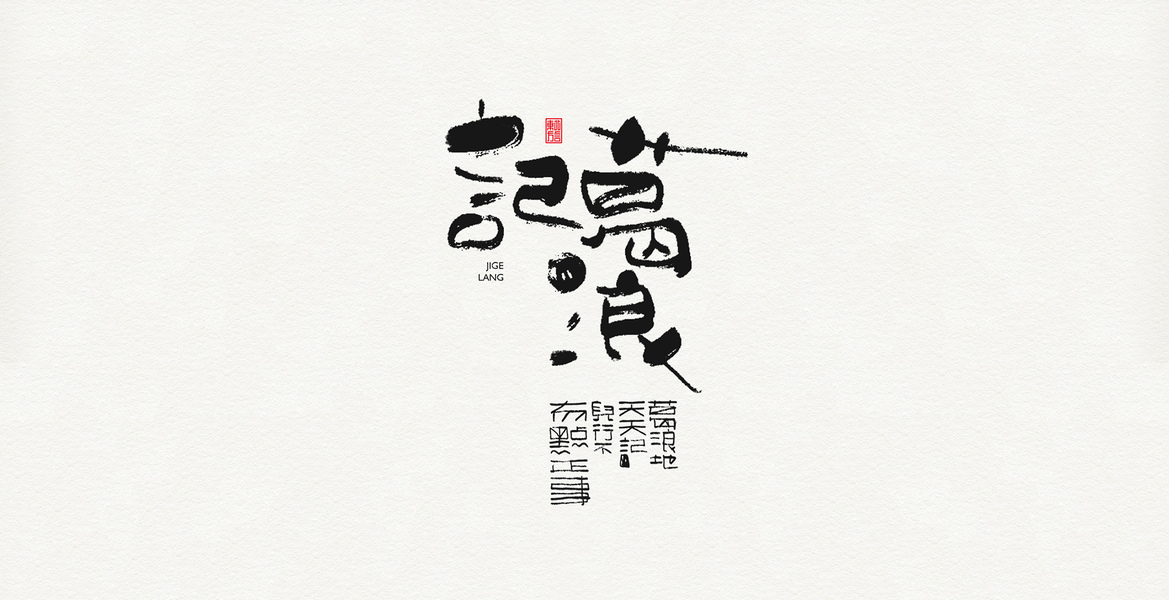 記
葛浪
JIGE
LANG
有點正事
兒行不
天天記
葛浪地